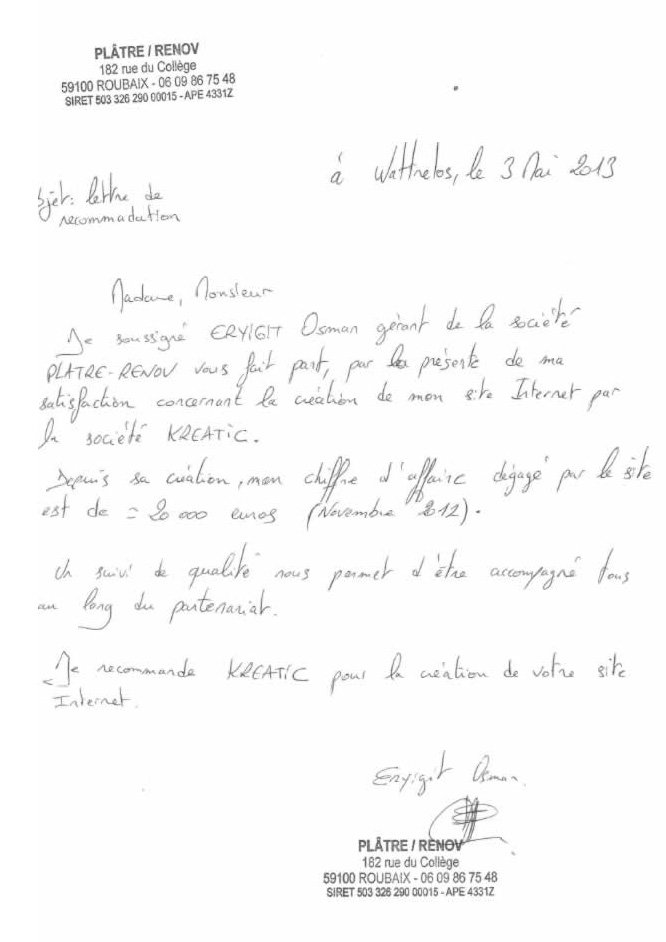 PLÂTRE / RENOV
182 rue du Collège
59100 ROUBAIX - 06 09 86 75 48
SIRET 503 326 290 00015 - APE 4331Z
à Wattrelos, le 3 Mai 2013
Objet: lettre de
recommadation
Madame, Monsieur
Je soussigné ERYIGIT Osman gérant de la société
PLATRE-RENOV vous fait part, par la présente de ma
satisfaction concernant la création de mon site Internet par
la société KREATIC.
Depuis sa création, mon chiffre d'affaire dégagé par le site
est de = 20 000 euros (Novembre 2012).
Un suivi de qualité nous permet d'être accompagné tous
au long du partenariat.
Je recommande KREATIC pour la création de votre site
Internet.
Eryigit Osman.
PLÂTRE / RENOV
182 rue du Collège
59100 ROUBAIX - 06 09 86 75 48
SIRET 503 326 290 00015 - APE 4331Z